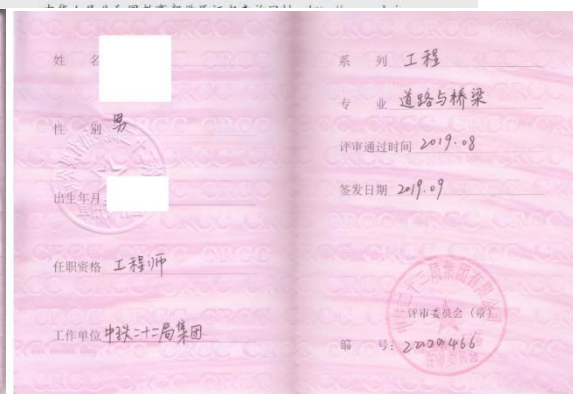 姓 名
性 别 男
出生年月
任职资格 工程师
工作单位 中铁二十二局集团
系 列 工程
专 业 道路与桥梁
评审通过时间 2019.08
签发日期 2019.09
评审委员会（章）
编 号：